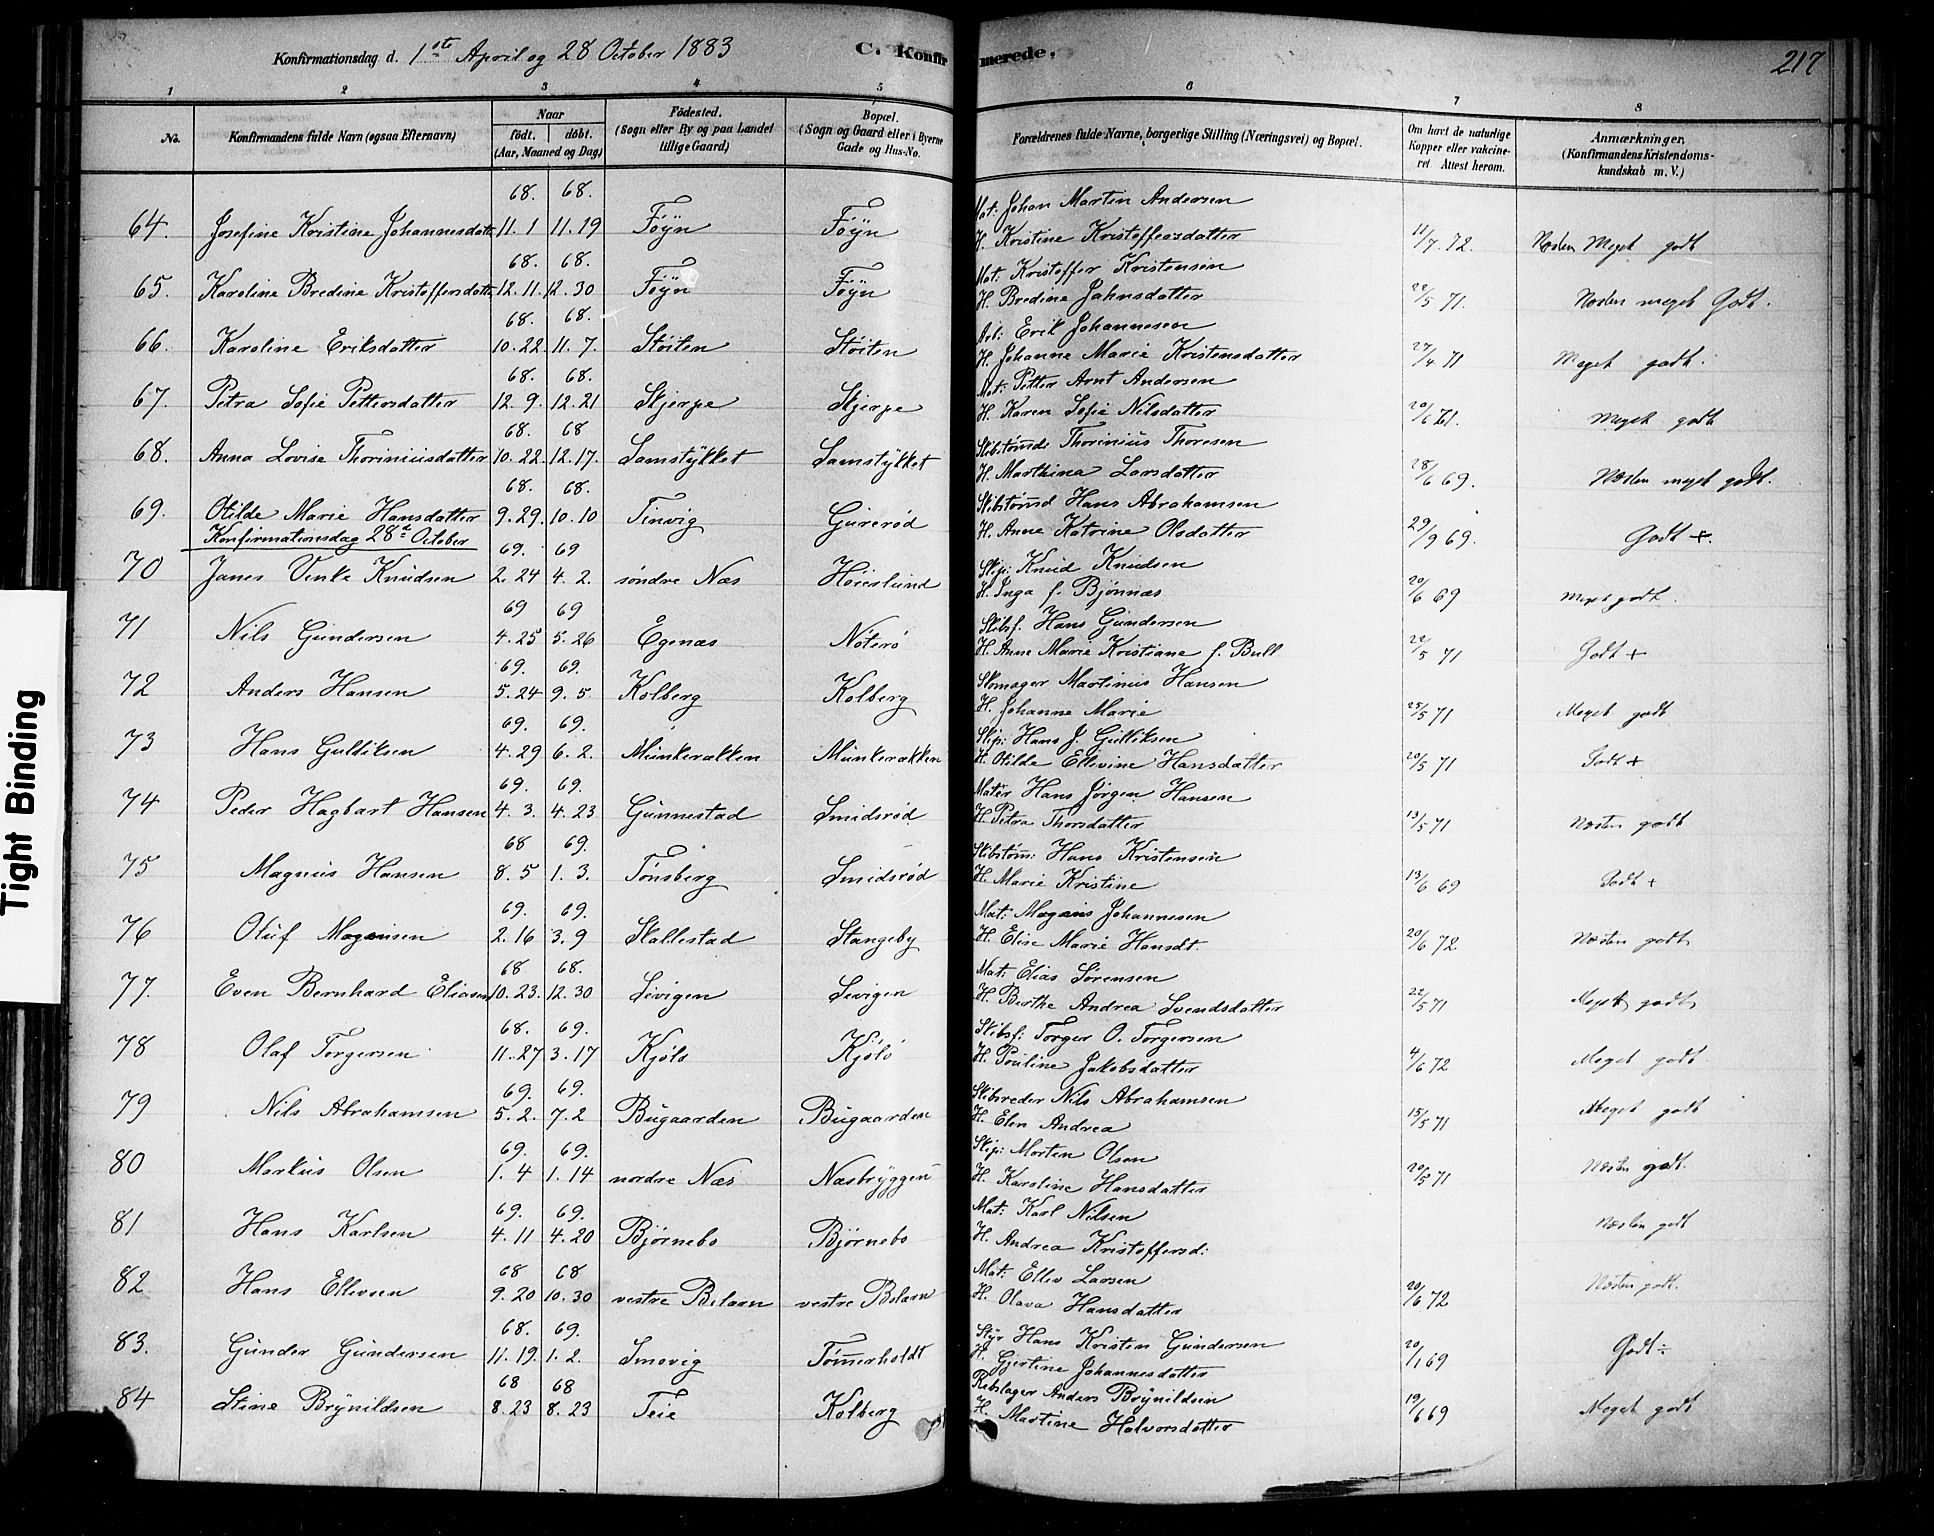 Konfirmationsdag d. 1ste April og 28 October 1883
C. Konfirmerede.
217
1 2 3 4 5 6 7 8
No. Konfirmandens fulde Navn (ogsaa Efternavn) Naar født. døbt. (Aar, Maaned og Dag) Fødested. (Sogn eller By og paa Landet tillige Gaard) Bopæl. (Sogn og Gaard eller i Byerne Gade og Hus-No. Forældrenes fulde Navne, borgerlige Stilling (Næringsvei) og Bopæl. Om havt de naturlige Kopper eller vakcineret Attest herom. Anmærkninger, (Konfirmandens Kristendomskundskab m. V.)
68. 68. Mat: Johan Martin Andersen
64. Josefine Kristine Johannesdatt 11. 1 11. 19 Føyn Føyn H. Kristine Kristoffersdatter 11/7. 72. Næsten Meget godt
68. 68. Mat: Kristoffer Kristensen
65. Karoline Bredine Kristoffersdatt 12. 11. 12. 30 Føyn Føyn H. Bredine Jahnsdatter 22/5 71. Næsten meget Godt.
68. 68. Arb: Erik Johannesen
66. Karoline Eriksdatter 10. 22 11. 7. Støiten Støiten H. Johanne Marie Kristensdatter 27/4 71 Meget godt.
68. 68. Mat: Petter Arnt Andersen
67. Petra Sofie Pettersdatter 12. 9. 12. 21 Skjerpe Skjerpe H. Karen Sofie Nilsdatter 20/6 71. Meget godt
68. 68 Skibstømd Thorinius Thoresen
68. Anna Lovise Thoriniusdatter 10. 22. 12. 17. Samstykket Samstykket H. Marthina Larsdatter 28/6 69. Næsten meget godt.
68. 68. Skibstømd Hans Abrahamsen
69. Otilde Marie Hansdatter 9. 29. 10. 10 Tinvig Gurerød H. Anne Katrine Olsdatter 29/9 69. Godt +.
Konfirmationsdag 28de October
69. 69 Skip: Knud Knudsen
70 Janes Venke Knudsen 2. 24 4. 2. søndre Næs Høieslund H. Inga f. Bjønnæs 20/6 69 Meget godt.
69 69 Skibsf. Hans Gundersen
71 Nils Gundersen 4. 25 5. 26 Egenæs Nøterø H. Anne Marie Kristiane f. Bull 22/5 71 Godt +
69. 69. Skomager Martinius Hansen
72 Anders Hansen 5. 24 9. 5. Kolberg Kolberg H. Johanne Marie 25/5 71 Meget godt
69. 69. Skip: Hans J. Gulliksen
73 Hans Gulliksen 4. 29 6. 2. Munkerækken Munkerækken H. Otilde Ellevine Hansdatter 20/5 71 Godt +
69. 69. Matr: Hans Jørgen Hansen
74 Peder Hagbart Hansen 4. 3. 4. 23 Gunnestad Smidsrød H. Petra Thorsdatter 13/5 71 Næsten godt
68 69. Skibstøm: Hans Kristensen
75 Magnus Hansen 8. 5 1. 3. Tønsberg Smidsrød H. Marie Kristine 13/6 69 Godt +
69. 69. Mat: Magnus Johannesen
76 Oluf Magnusen 2. 16 3. 9 Skallestad Stangeby H. Elise Marie Hansdt. 20/6 72 Næsten godt
68 68. Mat: Elias Sørensen
77. Even Bernhard Eliasen 10. 23. 12. 30 Sevigen Sevigen H. Berthe Andrea Svendsdatter 22/5 71 Meget godt
68. 69. Skibsf: Torger O. Torgersen
78 Olaf Torgersen 11. 27 3. 17 Kjølø Kjølø H. Pauline Jakobsdatter 4/6 72 Meget godt
69. 69. Skibsreder Nils Abrahamsen
79 Nils Abrahamsen 5. 2. 7. 2 Bugaarden Bugaarden H. Elen Andrea 15/5 71 Meget godt
69. 69. Skip: Morten Olsen
80 Markus Olsen 1. 4 1. 14 nordre Næs Næsbryggen H. Karoline Hansdatter 20/5 71 Næsten godt.
69. 69. Mat: Karl Nilsen
81 Hans Karlsen 4. 11 4. 20 Bjørnebo Bjørnebo H. Andrea Kristoffersd: Næsten godt
68 68 Mat: Ellev Larsen
82 Hans Ellevsen 9. 20 10. 30 vestre Bolærn vestre Bolærn H. Olava Hansdatter 20/6 72 Næsten godt.
68. 69. Styr Hans Kristen Gundersen
83. Gunder Gundersen 11. 19. 1. 2. Smevig Tømmerholdt H. Gjertine Johannesdatter 20/1 69 Godt ÷
68 68 Rebslager Anders Brynildsen
84 Stine Brynildsen 8. 23 8. 23 Teie Kolberg H. Martine Halvorsdatter 19/6 69 Meget godt
Tight Binding